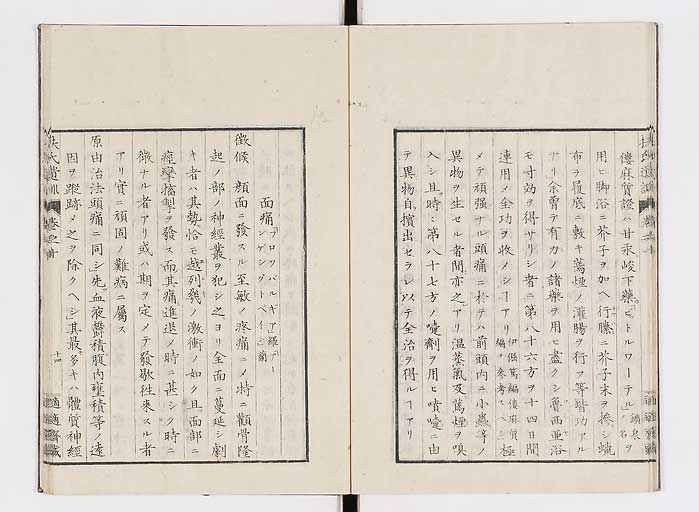 僂麻質證ハ甘汞峻下藥「ビトルワーテル」鑛泉ノ名ヲ
用ヒ脚浴ニ芥子ヲ加ヘ行縢ニ芥子末ヲ摻シ蠟
布ヲ履底ニ敷キ蔫煙ノ灌腸ヲ行フ等皆功アル
ナリ余嘗テ有力ノ諸藥ヲ用ヒ盡クシ魯西亜浴
モ寸効ヲ得サリシ者ニ第八十六方ヲ十四日間
連用メ全功ヲ收メシヿアリ
メテ頑強ナル頭痛ニ於テハ前頭内ニ小蟲等ノ
異物ヲ生セル者間亦之アリ温蒸氣及蔫煙ヲ嗅
入シ且時々第八十七方ノ嚏劑ヲ用ヒ噴嚏ニ由
テ異物自擯出セラレ以テ全治ヲ得ルヿアリ
面痛
徴候 顔面ニ發スル至敏ノ疼痛ニメ特ニ顴骨隆
起ノ部ノ神經叢ヲ犯シ之ヨリ全面ニ蔓延シ劇
キ者ハ其勢恰モ越列幾ノ激衝ノ如ク且面部ニ
痙攣搐掣ヲ發ス而其痛進退メ時ニ甚シク時ニ
微ナル者アリ或ハ期ヲ定メテ發歇徃來スル者
アリ實ニ頑固ノ難病ニ屬ス
原由治法頭痛ニ同シ先血液欝積腹内壅積等ノ遠
因ヲ蹤跡メ之ヲ除クヘシ其最多キハ體質神經
扶氏遺訓 卷之十
十四
適適齋藏